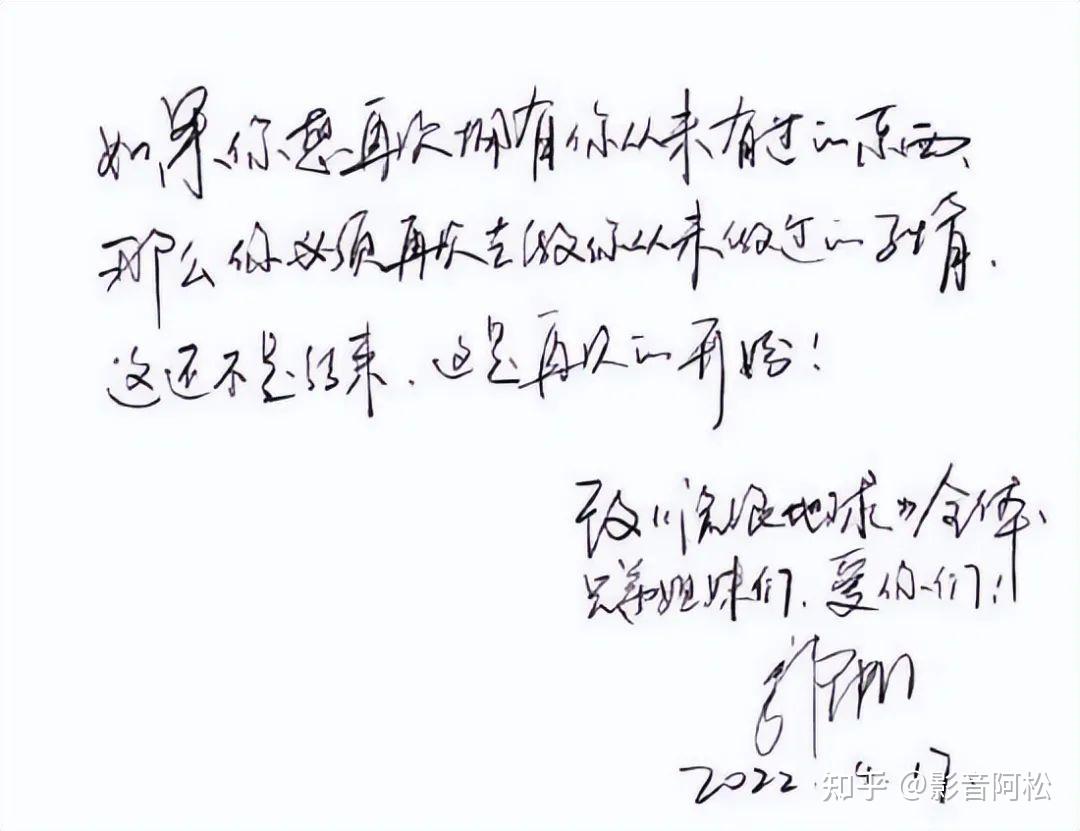 如果你想再次拥有你从来有过的东西、
那么你必须再次去做你从来做过的事情.
这还不是结束.这是再次的开始!
致《流浪地球》全体
兄弟姐妹们.爱你们!
郭帆
2022.4.17
知乎 @影音阿松